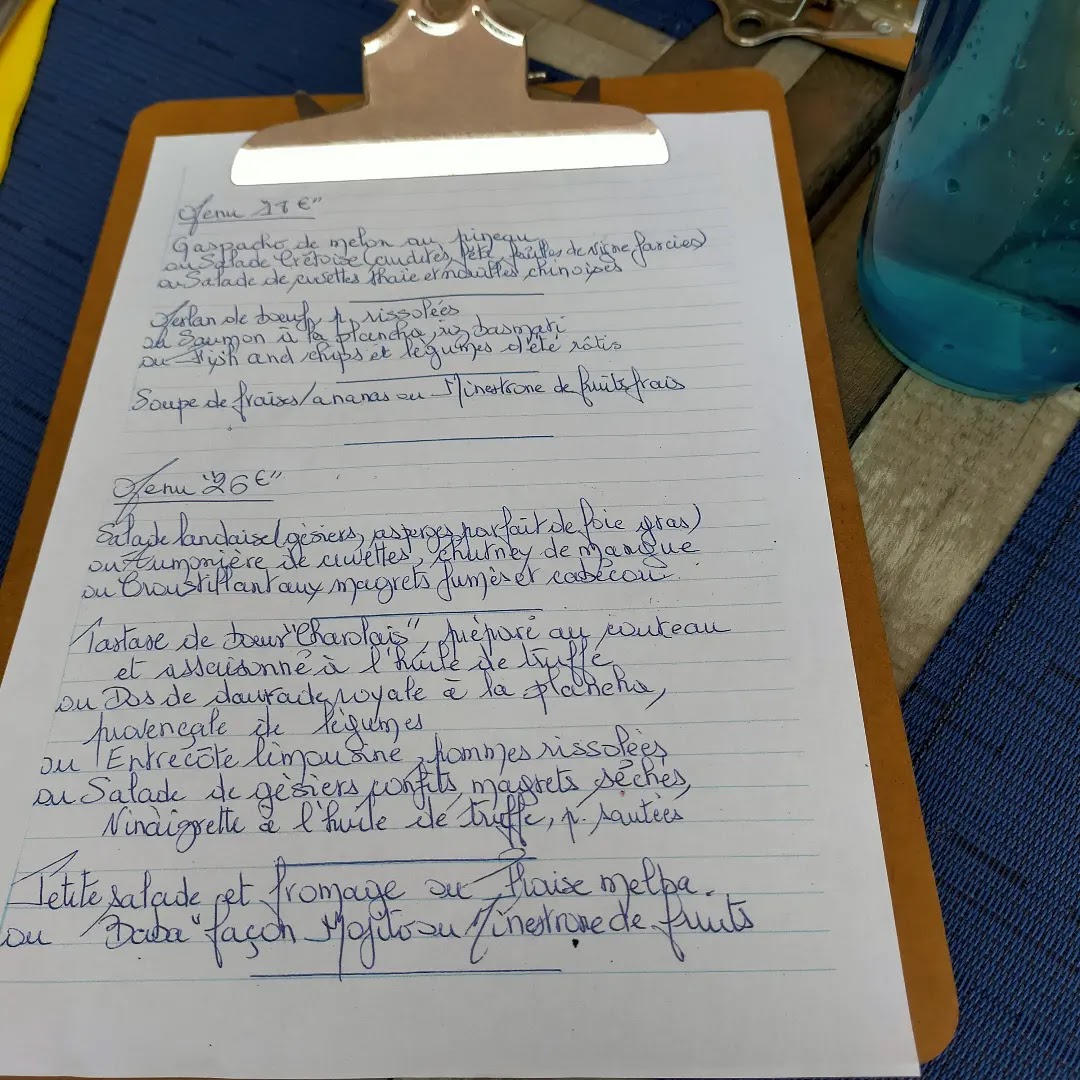 Menu 17 €"
Gaspacho de melon au pineau
ou Salade Crétoise (crudités, féta, feuilles de vigne farcies)
ou Salade de crevettes thaie et nouilles chinoises
Merlan de bœuf, p. rissolées
ou Saumon à la plancha, riz basmati
ou Fish and chips et légumes d'été rôtis
Soupe de fraises/ananas ou Minestrone de fruits frais
Menu "26 €"
Salade landaise (gésiers, asperges, parfait de foie gras)
ou Aumonière de crevettes, chutney de mangue
ou Croustillant aux magrets fumés et cabécou
Tartare de bœuf "Charolais", préparé au couteau
et assaisonné à l'huile de truffe
ou Dos de daurade royale à la plancha,
provençale de légumes
ou Entrecôte limousine, pommes rissolées
ou Salade de gésiers confits, magrets séchés,
Vinaigrette à l'huile de truffe, p. sautées
Petite salade et fromage ou fraise melba.
ou Baba "façon Mojito ou Minestrone de fruits